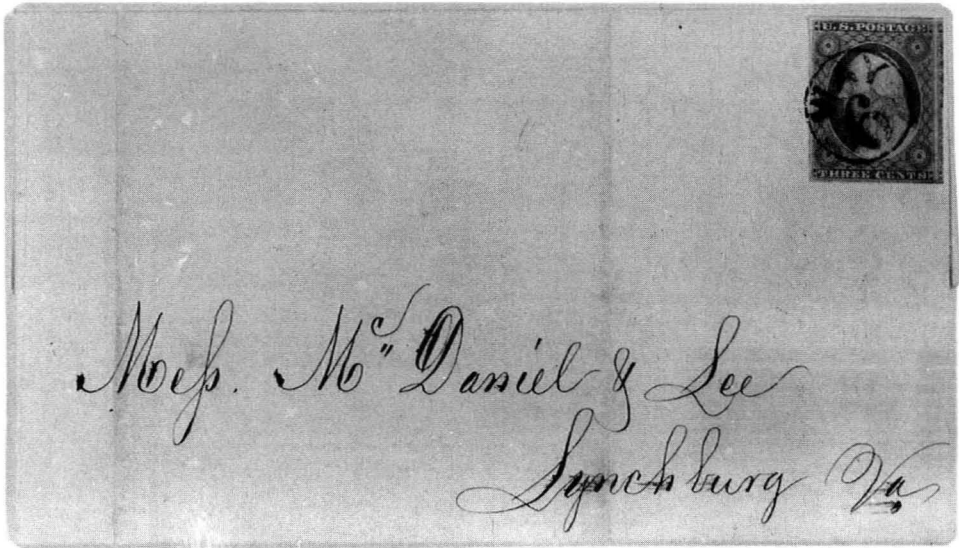 U.S. POSTAGE
6
THREE CENTS
Mess. Mc Daniel & Lee
Lynchburg Va